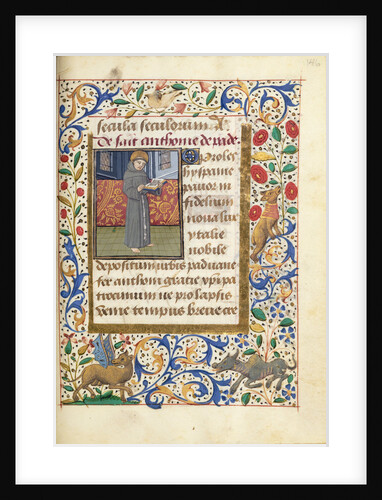 secula seculorum
De sait anthonie de pade
O proles
hyspanie
pauor in
fidelium
noua lux
ytalie
nobile
depositum urbis paduane
fer anthoni gracie xpi pa
trocinium ne prolapsis
venie tempus breue cre